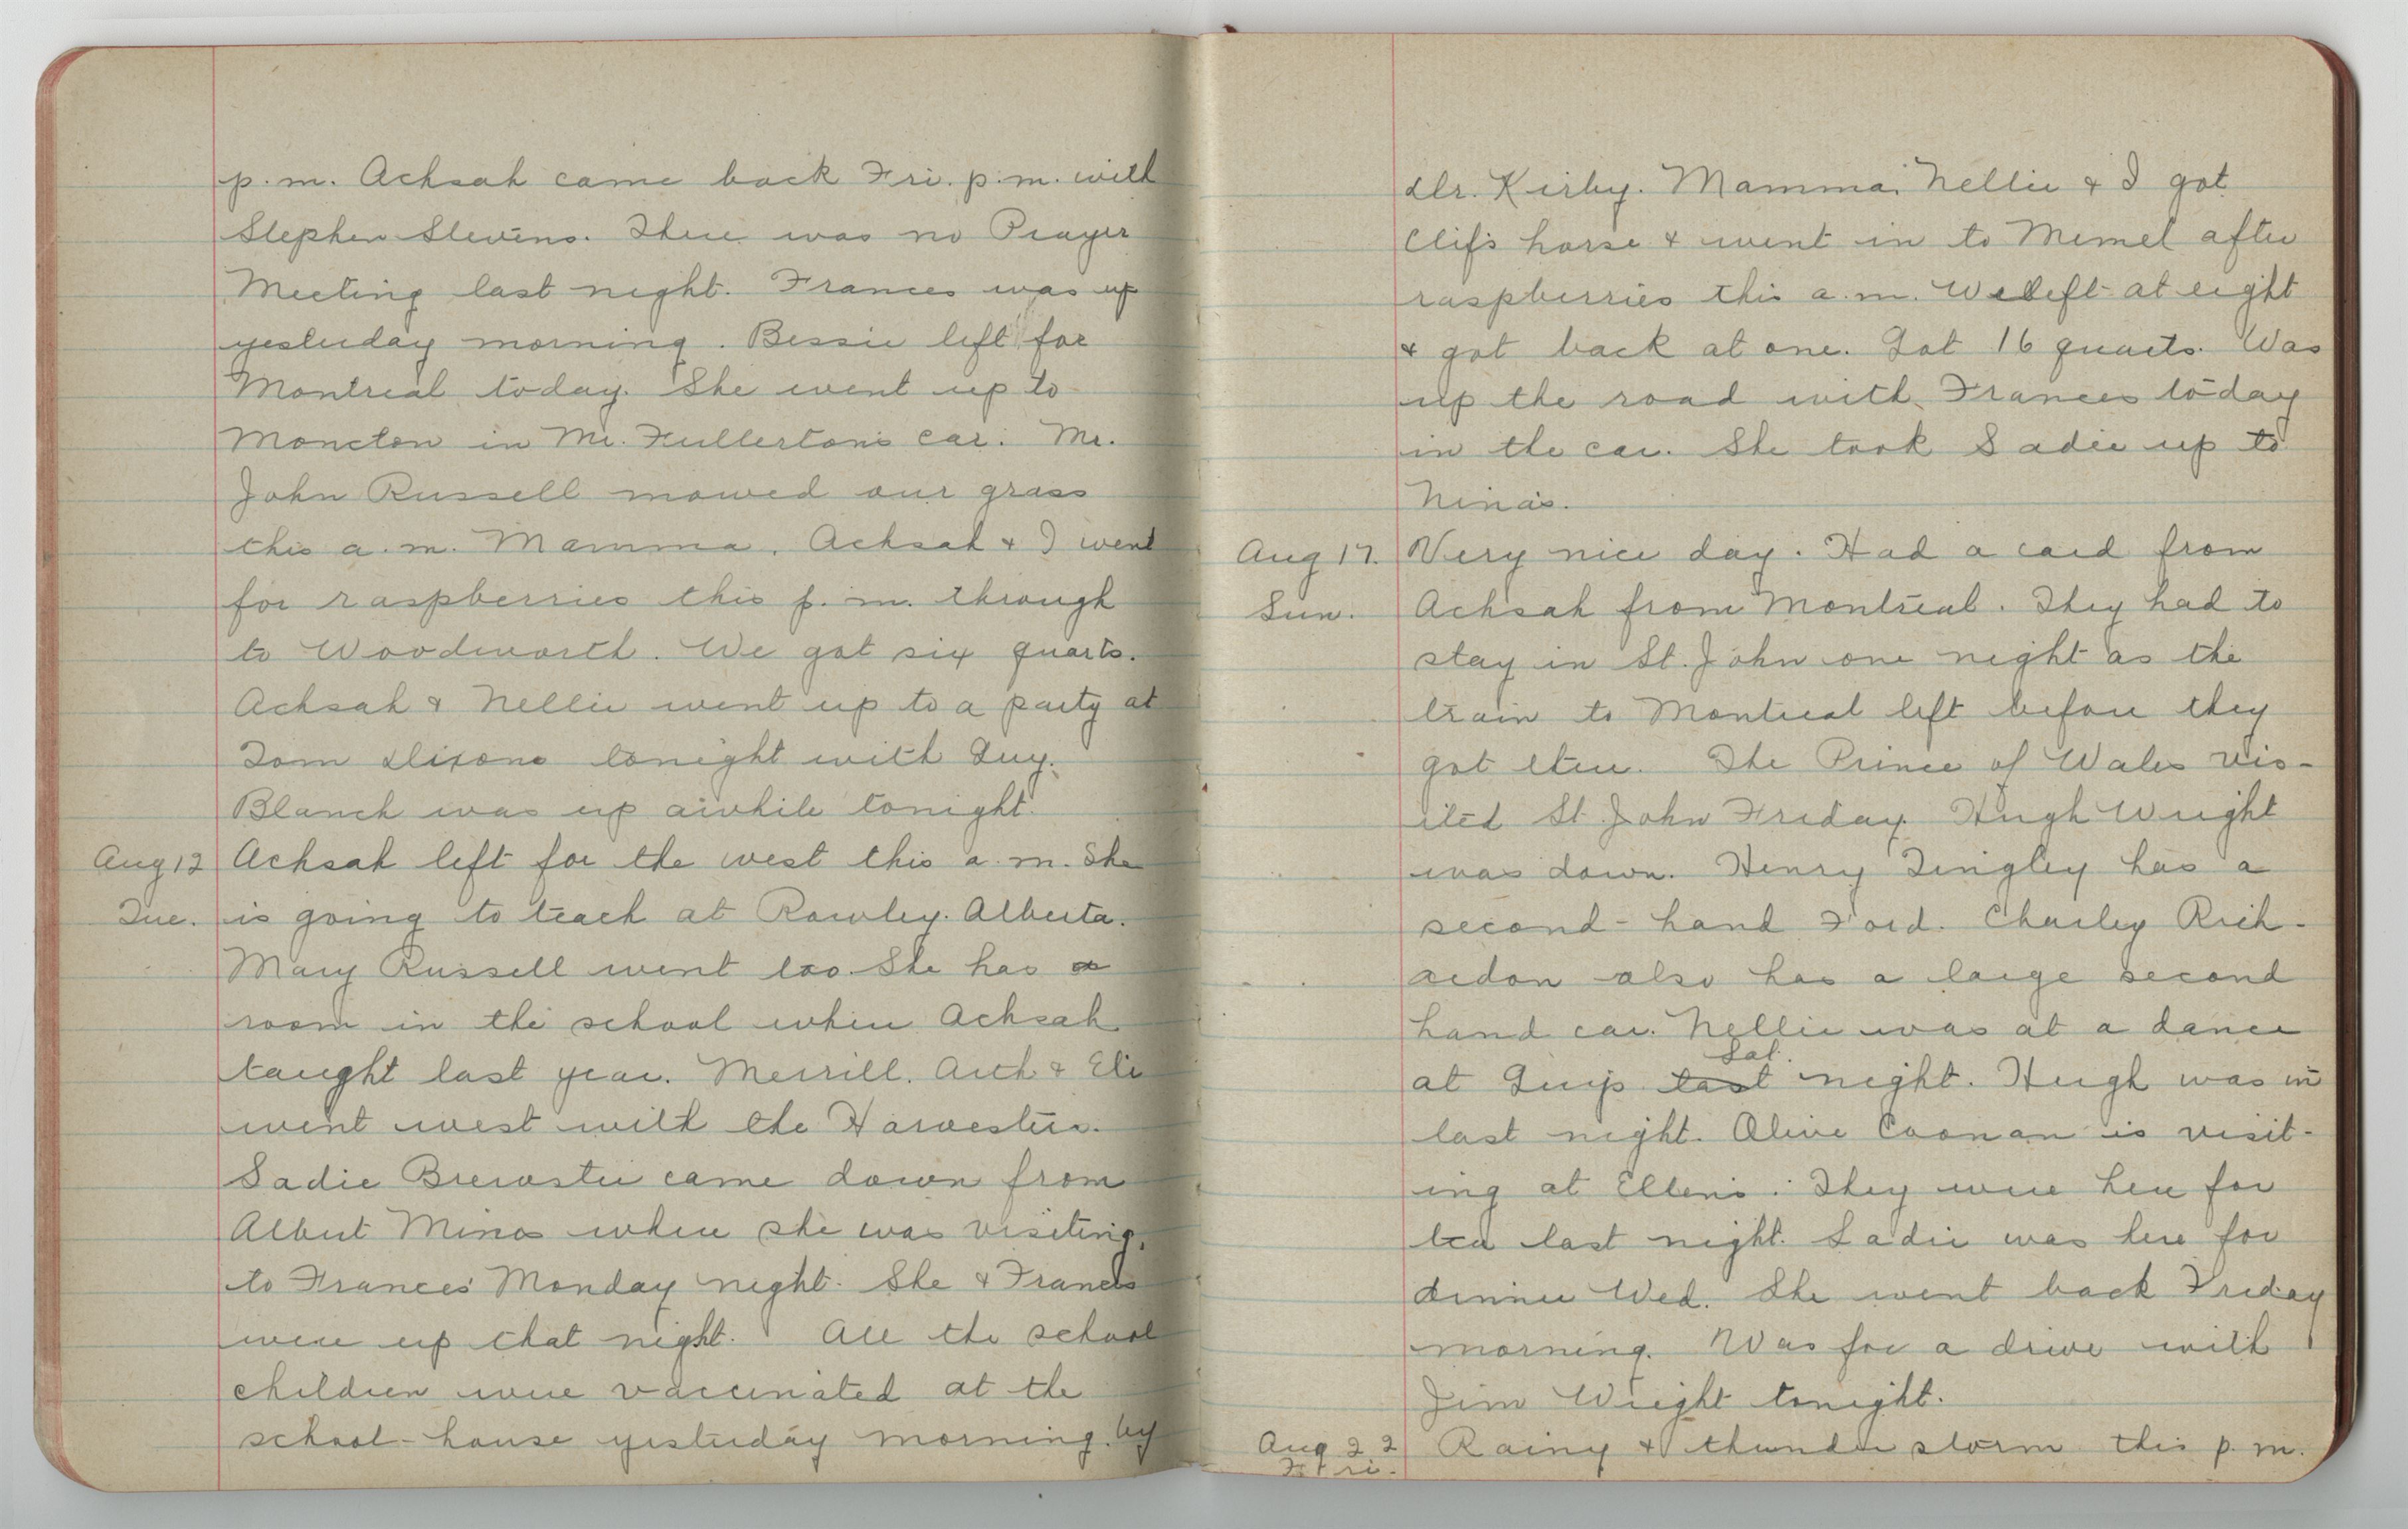 p.m. Achsah came back Fri. p.m. with
Stephen Stevens. There was no Prayer
Meeting last night. Frances was up
yesterday morning. Bessie left for
Montreal today. She went up to
Moncton in Mr. Fullerton's car. Mr.
John Russell mowed our grass
this a.m. Mamma, Achsah & I went
for raspberries this p.m. through
to Woodworth. We got six quarts.
Achsah & Nellie went up to a party at
Tom Dixons tonight with Guy.
Blanch was up awhile tonight.
Aug 12 Achsah left for the west this a.m. She
Tue. is going to teach at Rowley. Alberta.
Mary Russell went too. She has a
room in the school where Achsah
taught last year. Merrill, Arth & Eli
went west with the Harvesters.
Sadie Brewster came down from
Albert Mines where she was visiting,
to Frances' Monday night. She & Frances
were up that night. All the school
children were vaccinated at the
school-house yesterday morning by
Dr. Kirby. Mamma, Nellie & I got
Clif's horse & went in to Memel after
raspberries this a.m. We left at eight
& got back at one. Got 16 quarts. Was
up the road with Frances to-day
in the car. She took Sadie up to
Nina's.
Aug 17. Very nice day. Had a card from
Sun. Achsah from Montreal. They had to
stay in St. John one night as the
train to Montreal left before they
got there. The Prince of Wales vis-
ited St. John Friday. Hugh Wright
was down. Henry Tingley has a
second-hand Ford. Charley Rich-
ardon also has a large second
hand car. Nellie was at a dance
at Guy's last Sat. night. Hugh was in
last night. Olive Coonan is visit-
ing at Ellen's. They were here for
tea last night. Sadie was here for
dinner Wed. She went back Friday
morning. Was for a drive with
Jim Wright tonight.
Aug 22 Rainy & thunder storm this p.m.
Fri.